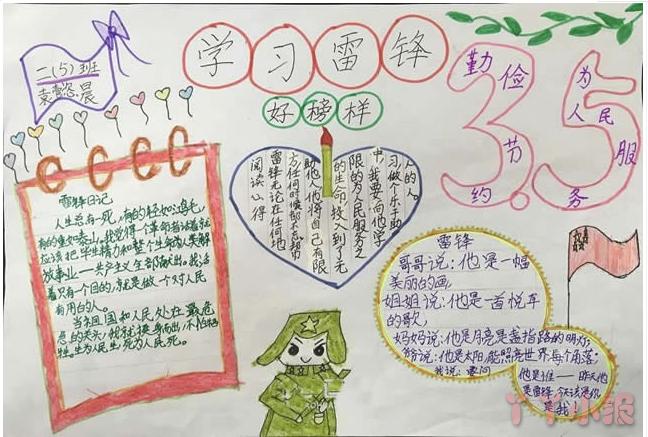 二(5)班
袁懿宸晨
学习雷锋
好榜样
3.5
勤俭节约
为人民服务
雷锋日记
人生总有一死,有的轻如鸿毛,
有的重如泰山。我觉得一个革命者活着就
应该把毕生精力和整个生命为人类解
放事业——共产主义全部献出。我活
着只有一个目的,就是做一个对人民
有用的人。
当祖国和人民处在最危
急的关头,我就挺身而出,不怕牺
牲。生为人民生,死为人民死。
阅读心得
雷锋无论在任何地
方任何时候都不忘帮
助他人,他将自己有限
的生命投入到了无
限的为人民服务之
中,我要向他学
习,做个乐于助
人的人。
雷锋
哥哥说:他是一幅
美丽的画,
姐姐说:他是一首悦耳
的歌,
妈妈说:他是月亮是盏指路的明灯,
爷爷说:他是太阳,能照亮世界每个角落;
我说:
他是谁——昨天他
是雷锋,今天该是你
是我!
丫丫小报